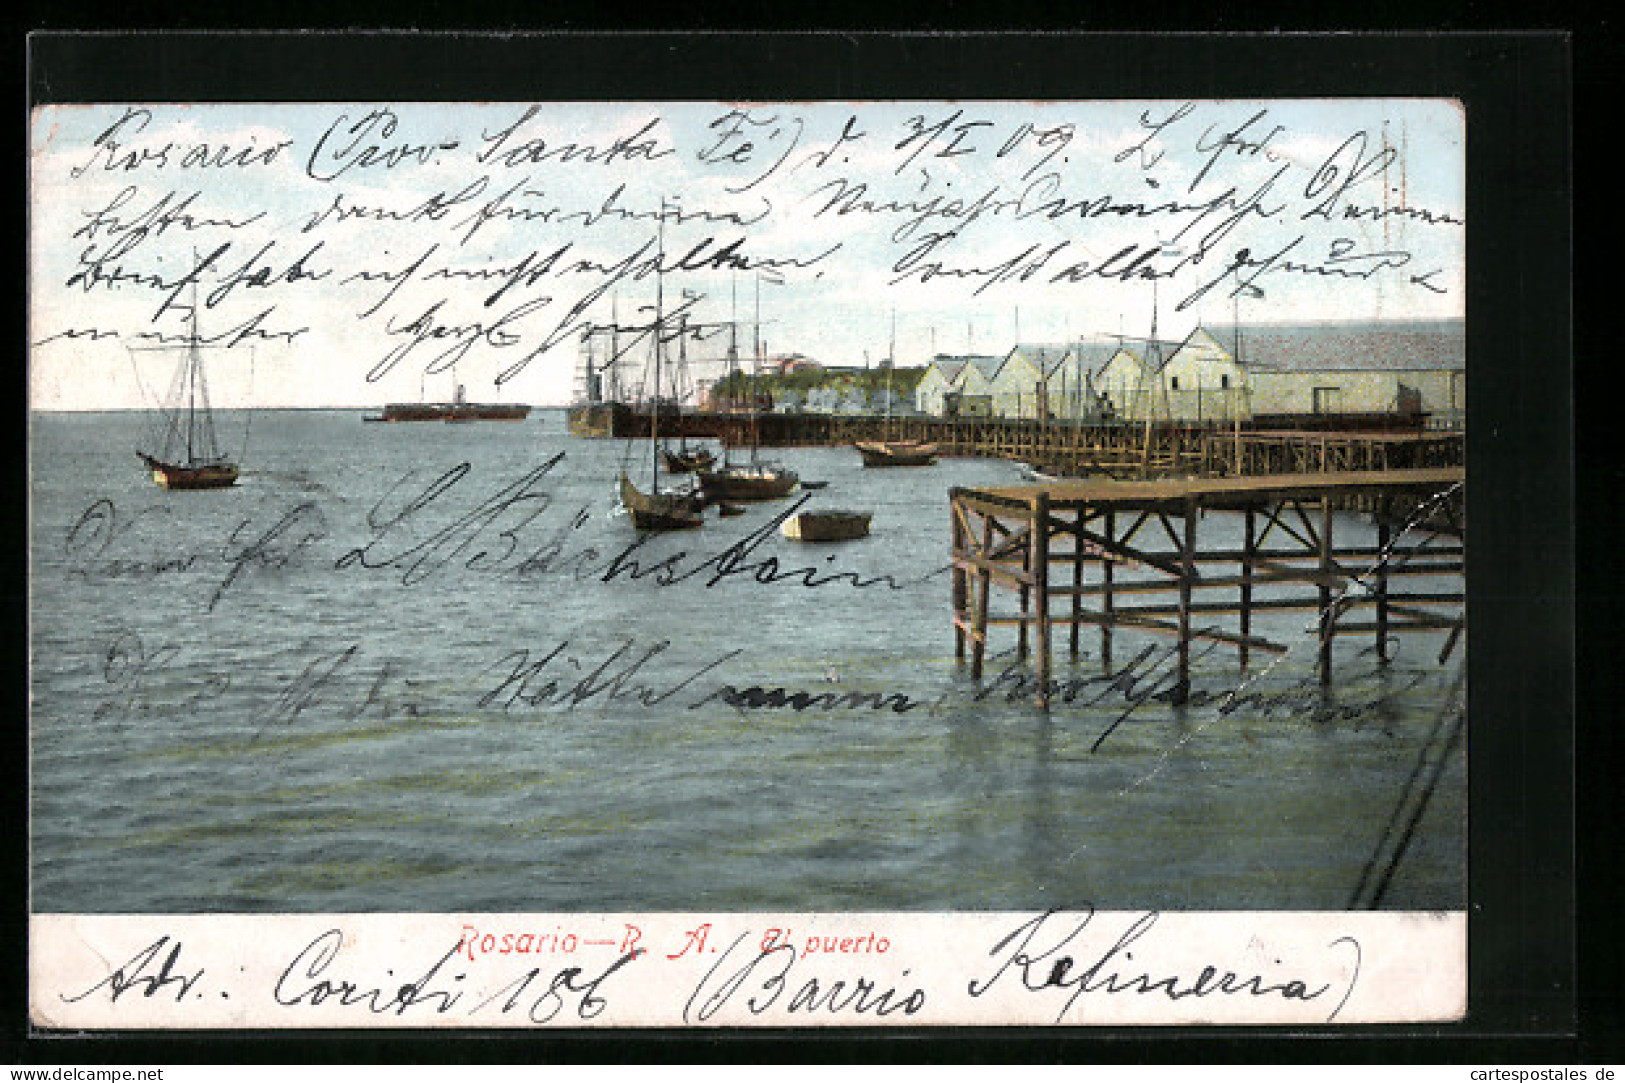 Rosario (Prov. Santa Fé) d. 3/I 09. L. Frd.
Besten Dank für deine Neujahrswünsche. Deinen
Brief habe ich nicht erhalten. Sonst alles gesund &
munter Herzl. Grüße
Dein Frd L. Bächstein
ist die
Rosario—R. A. El puerto
Adr.: Coriti 186 (Barrio Refineria)
cartespostales.de